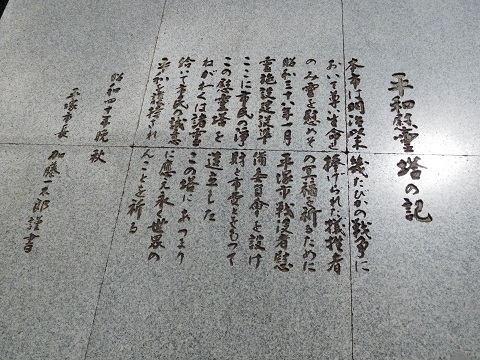 平和慰霊塔の記
本市は明治以来幾たびかの戦争に
おいて尊い生命を捧げられた犠牲者
のみ霊を慰めその冥福を祈るために
昭和三十八年一月平塚市戦没者慰
霊施設建設準備委員会を設け
ここに市民の浄財と市費とをもって
この慰霊塔を建立した
ねがわくは諸霊この塔にあつまり
給いて市民の誠悃に応え永く世界の
平和を護持されんことを祈る
昭和四十年晩秋
平塚市長 加藤一太郎謹書